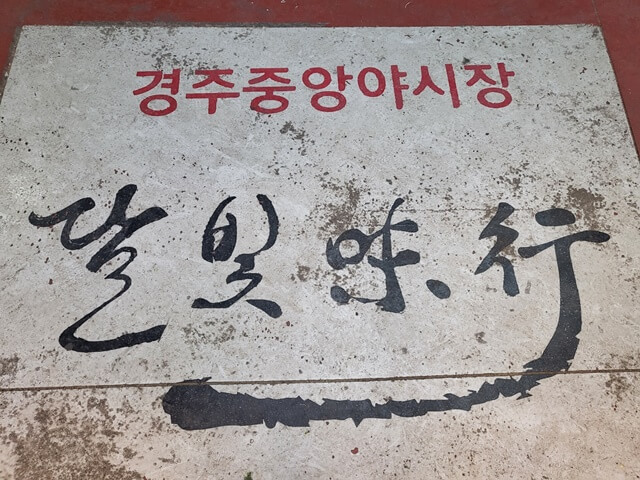 경주중앙야시장
달빛味行